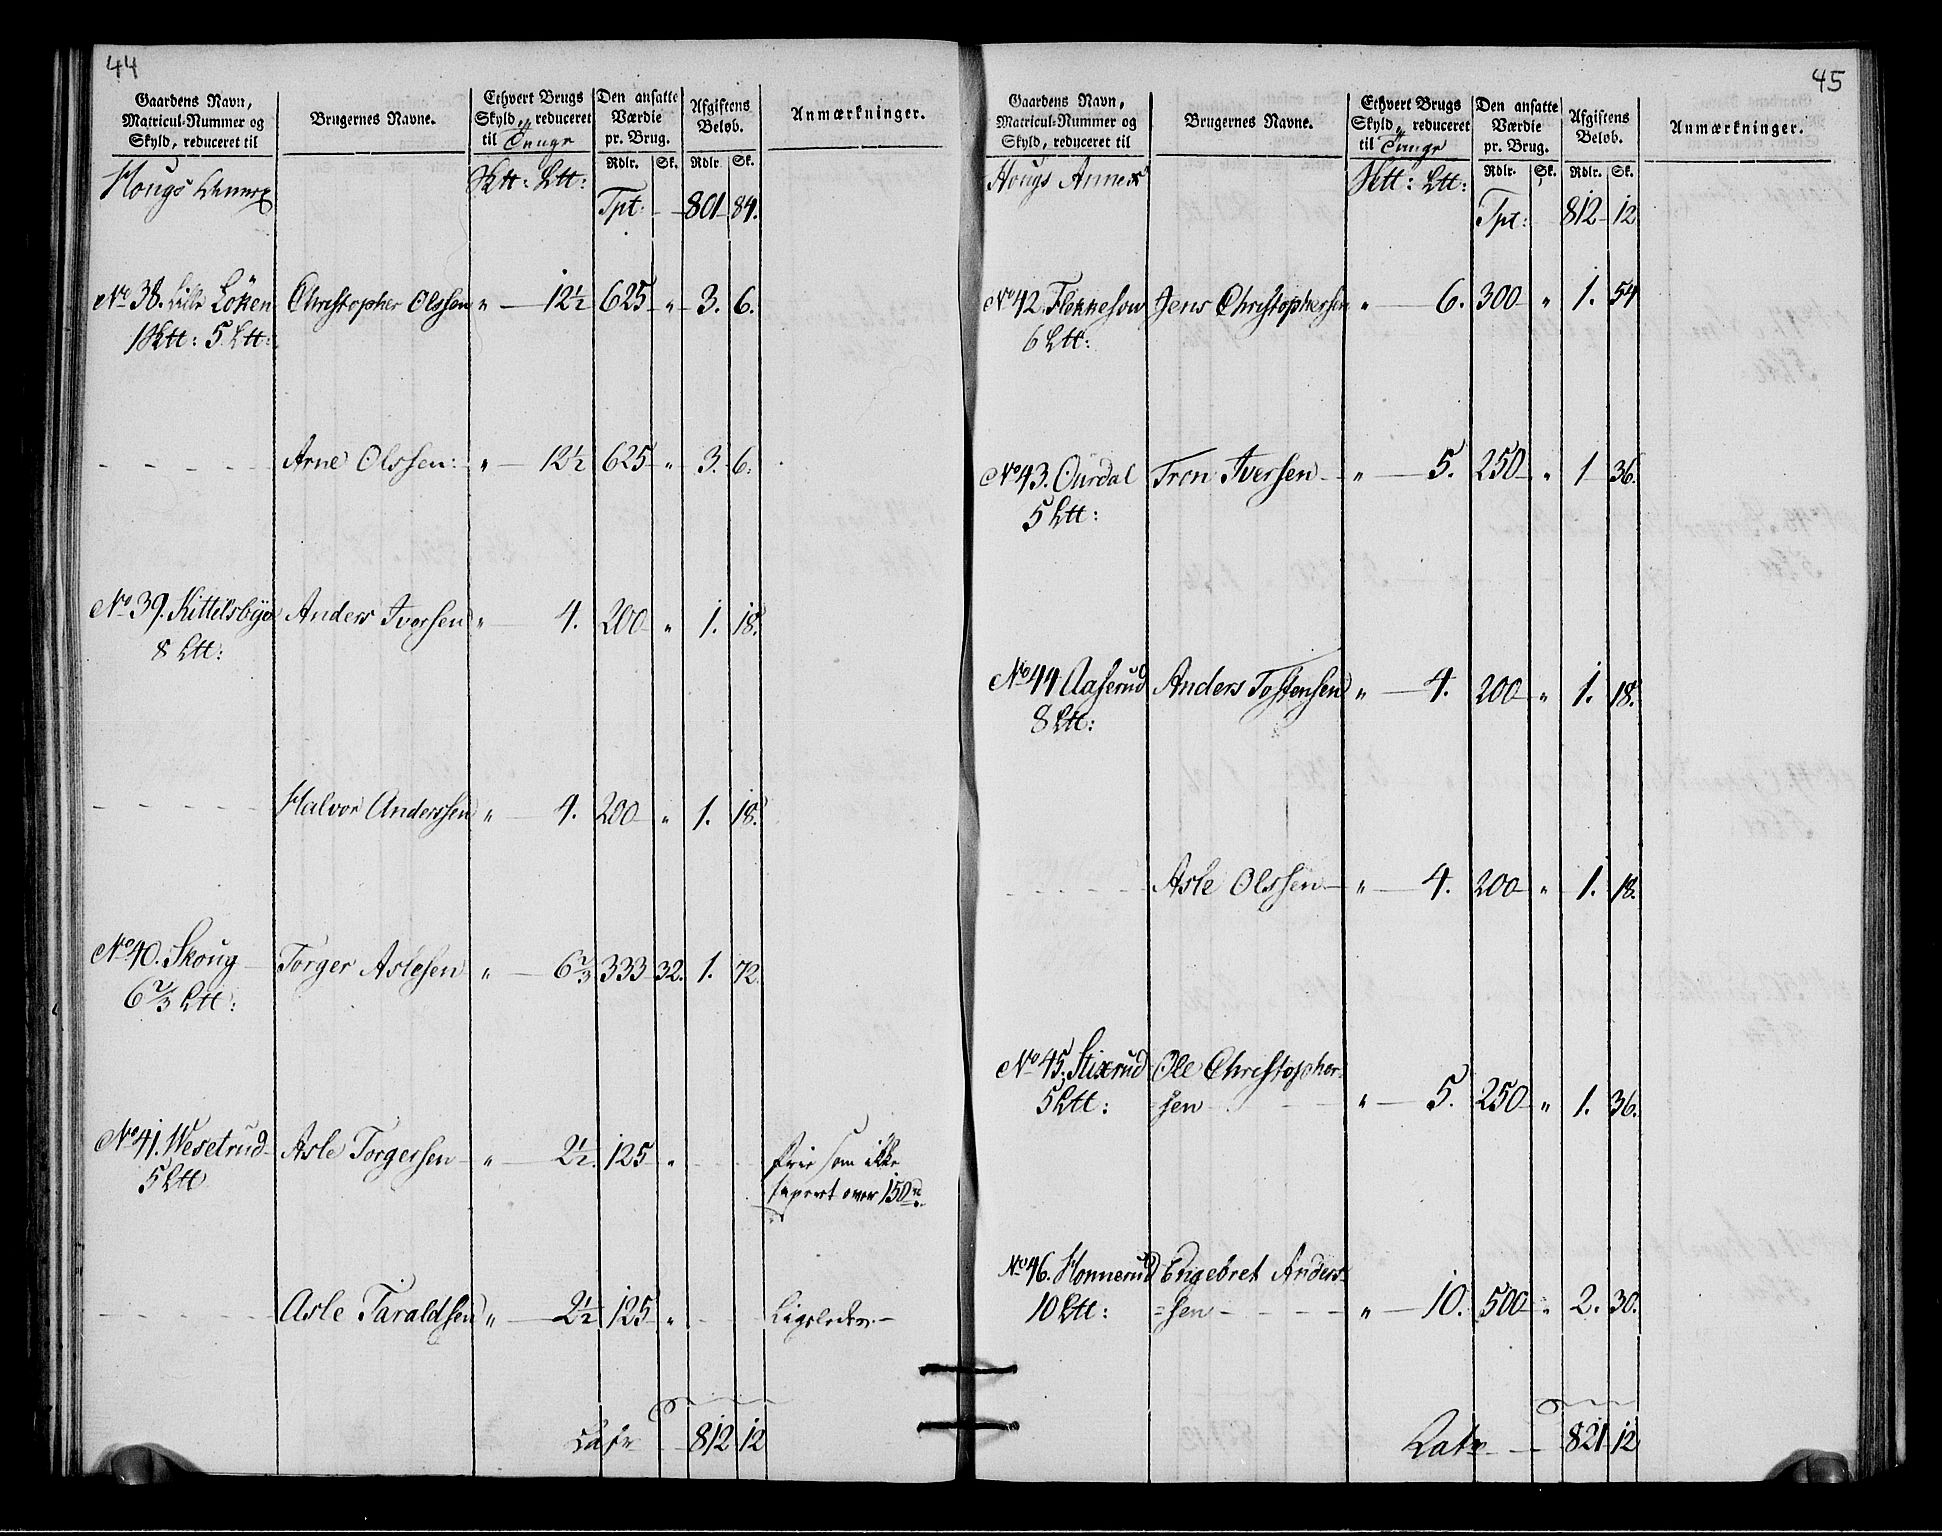 44
Gaardens Navn, Matricul-Nummer og Skyld, reduceret til
Brugernes Navne.
Ethvert Brugs Skyld, reduceret til Tunge
Den ansatte Værdie pr. Brug.
Afgiftens Beløb.
Anmærkninger.
Rdlr. Sk. Rdlr. Sk.
Hougs Annex Sktt: Ltt:
Tpt: 801 84.
No 38. Lille Löken Christopher Olssen „ 12½ 625 „ 3. 6.
1 Sktt: 5 Ltt:
Arne Olssen: „ 12½ 625 „ 3. 6.
No 39. Kittelsbye Anders Iversen „ 4. 200 „ 1. 18.
8 Ltt:
Halvor Anderssen „ 4. 200 „ 1. 18.
No 40. Skoug Torger Aslesen „ 6⅔ 333 32. 1. 72.
6⅔ Ltt:
No 41. Wesetrud Asle Torgersen „ 2½. 125 „ frie som ikke
5 Ltt taxeert over 150 rd.
Asle Taraldsen „ 2½ 125 „ Ligeledes.
Latr 812 12
45
Gaardens Navn, Matricul-Nummer og Skyld, reduceret til
Brugernes Navne.
Ethvert Brugs Skyld, reduceret til Tunge
Den ansatte Værdie pr. Brug.
Afgiftens Beløb.
Anmærkninger.
Rdlr. Sk. Rdlr. Sk.
Hougs Annex Sktt: Ltt:
Tpt: 812 12
No 42. Flennesow Jens Christophersen „ 6. 300 „ 1. 54
6 Ltt:
No 43. Ourdal Tron Iversen „ 5. 250 „ 1 36.
5 Ltt:
No 44 Aaserud Anders Tostensen „ 4. 200 „ 1. 18.
8 Ltt:
Asle Olssen „ 4. 200 „ 1. 18.
No 45. Stixrud Ole Christopher-
5 Ltt: =sen „ 5. 250 „ 1. 36.
No 46. Honnerud Engebret Anders-
10 Ltt: =sen „ 10. 500 „ 2. 30.
Latr 821 12